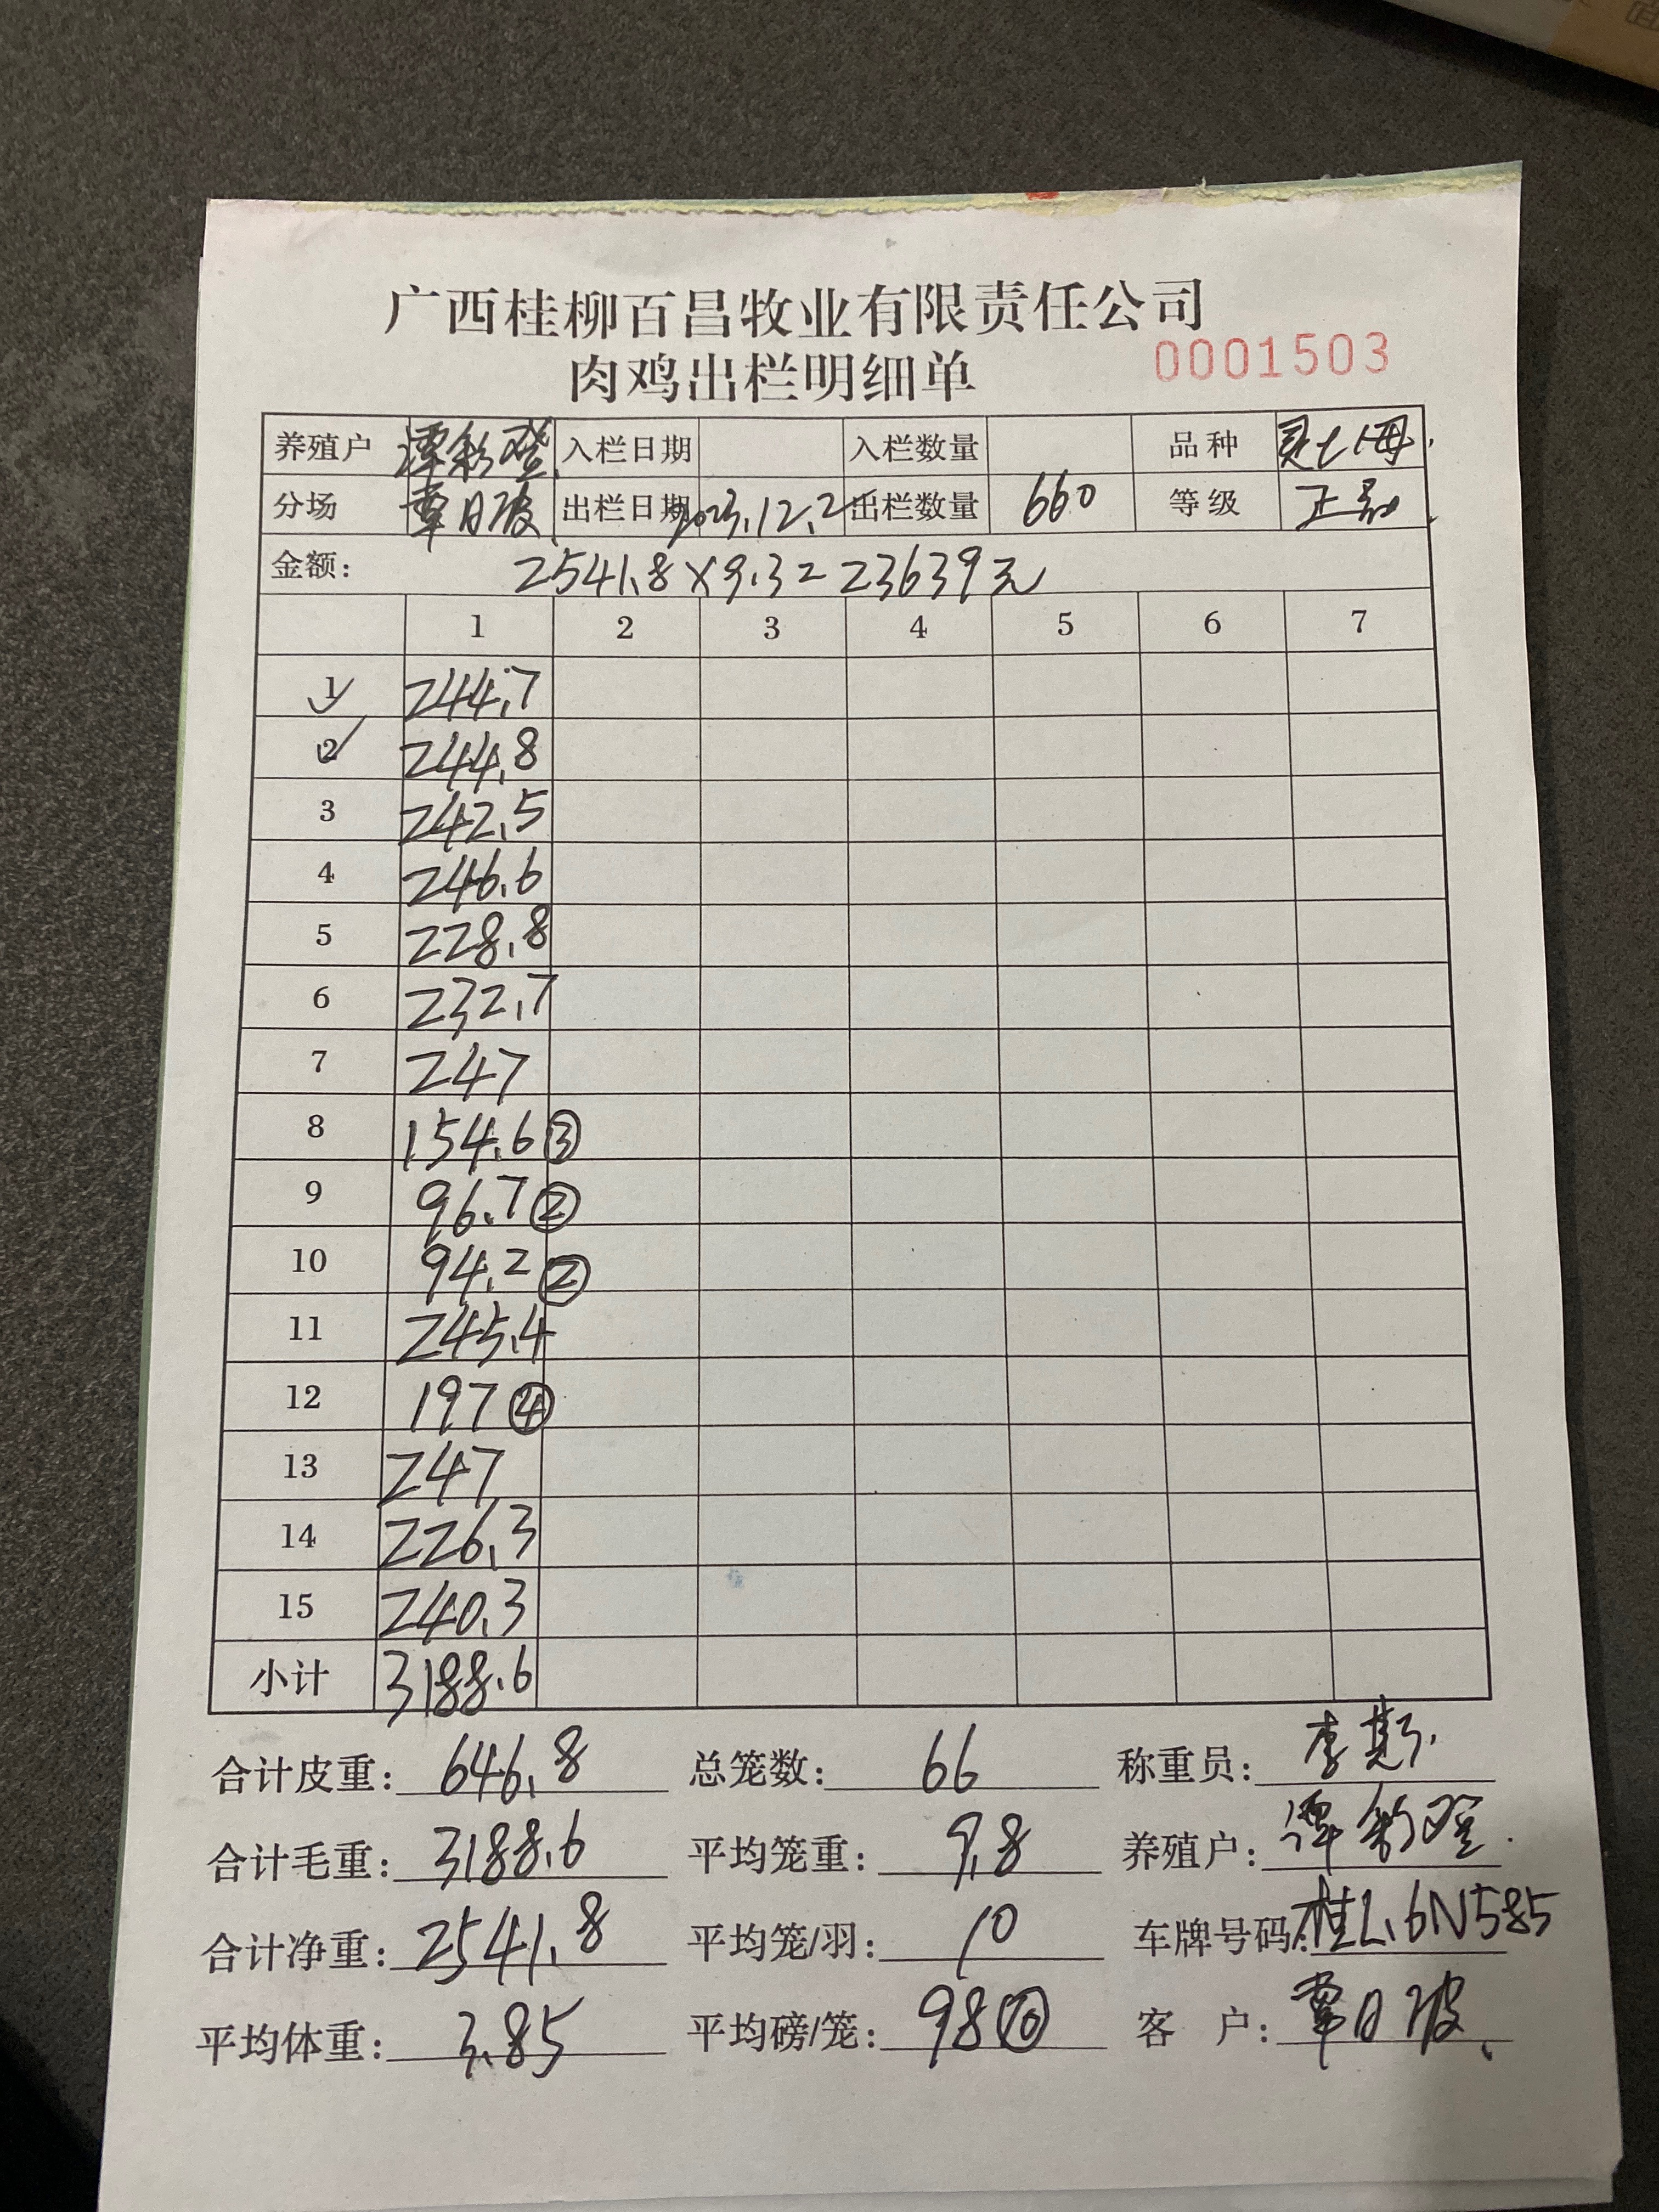 广西桂柳百昌牧业有限责任公司
肉鸡出栏明细单 0001503
养殖户 谭彩登 入栏日期 入栏数量 品种 灵七母
分场 覃日波 出栏日期 2023.12.2 出栏数量 660 等级 正品
金额: 2541.8×9.3=23639元
1 2 3 4 5 6 7
1 244.7
2 244.8
3 242.5
4 246.6
5 228.8
6 232.7
7 247
8 154.6 ③
9 96.7 ②
10 94.2 ②
11 245.4
12 197 ④
13 247
14 226.3
15 240.3
小计 3188.6
合计皮重: 646.8 总笼数: 66 称重员: 李
合计毛重: 3188.6 平均笼重: 9.8 养殖户: 谭彩登
合计净重: 2541.8 平均笼/羽: 10 车牌号码: 桂L.6N585
平均体重: 3.85 平均磅/笼: 98⑩ 客 户: 覃日波